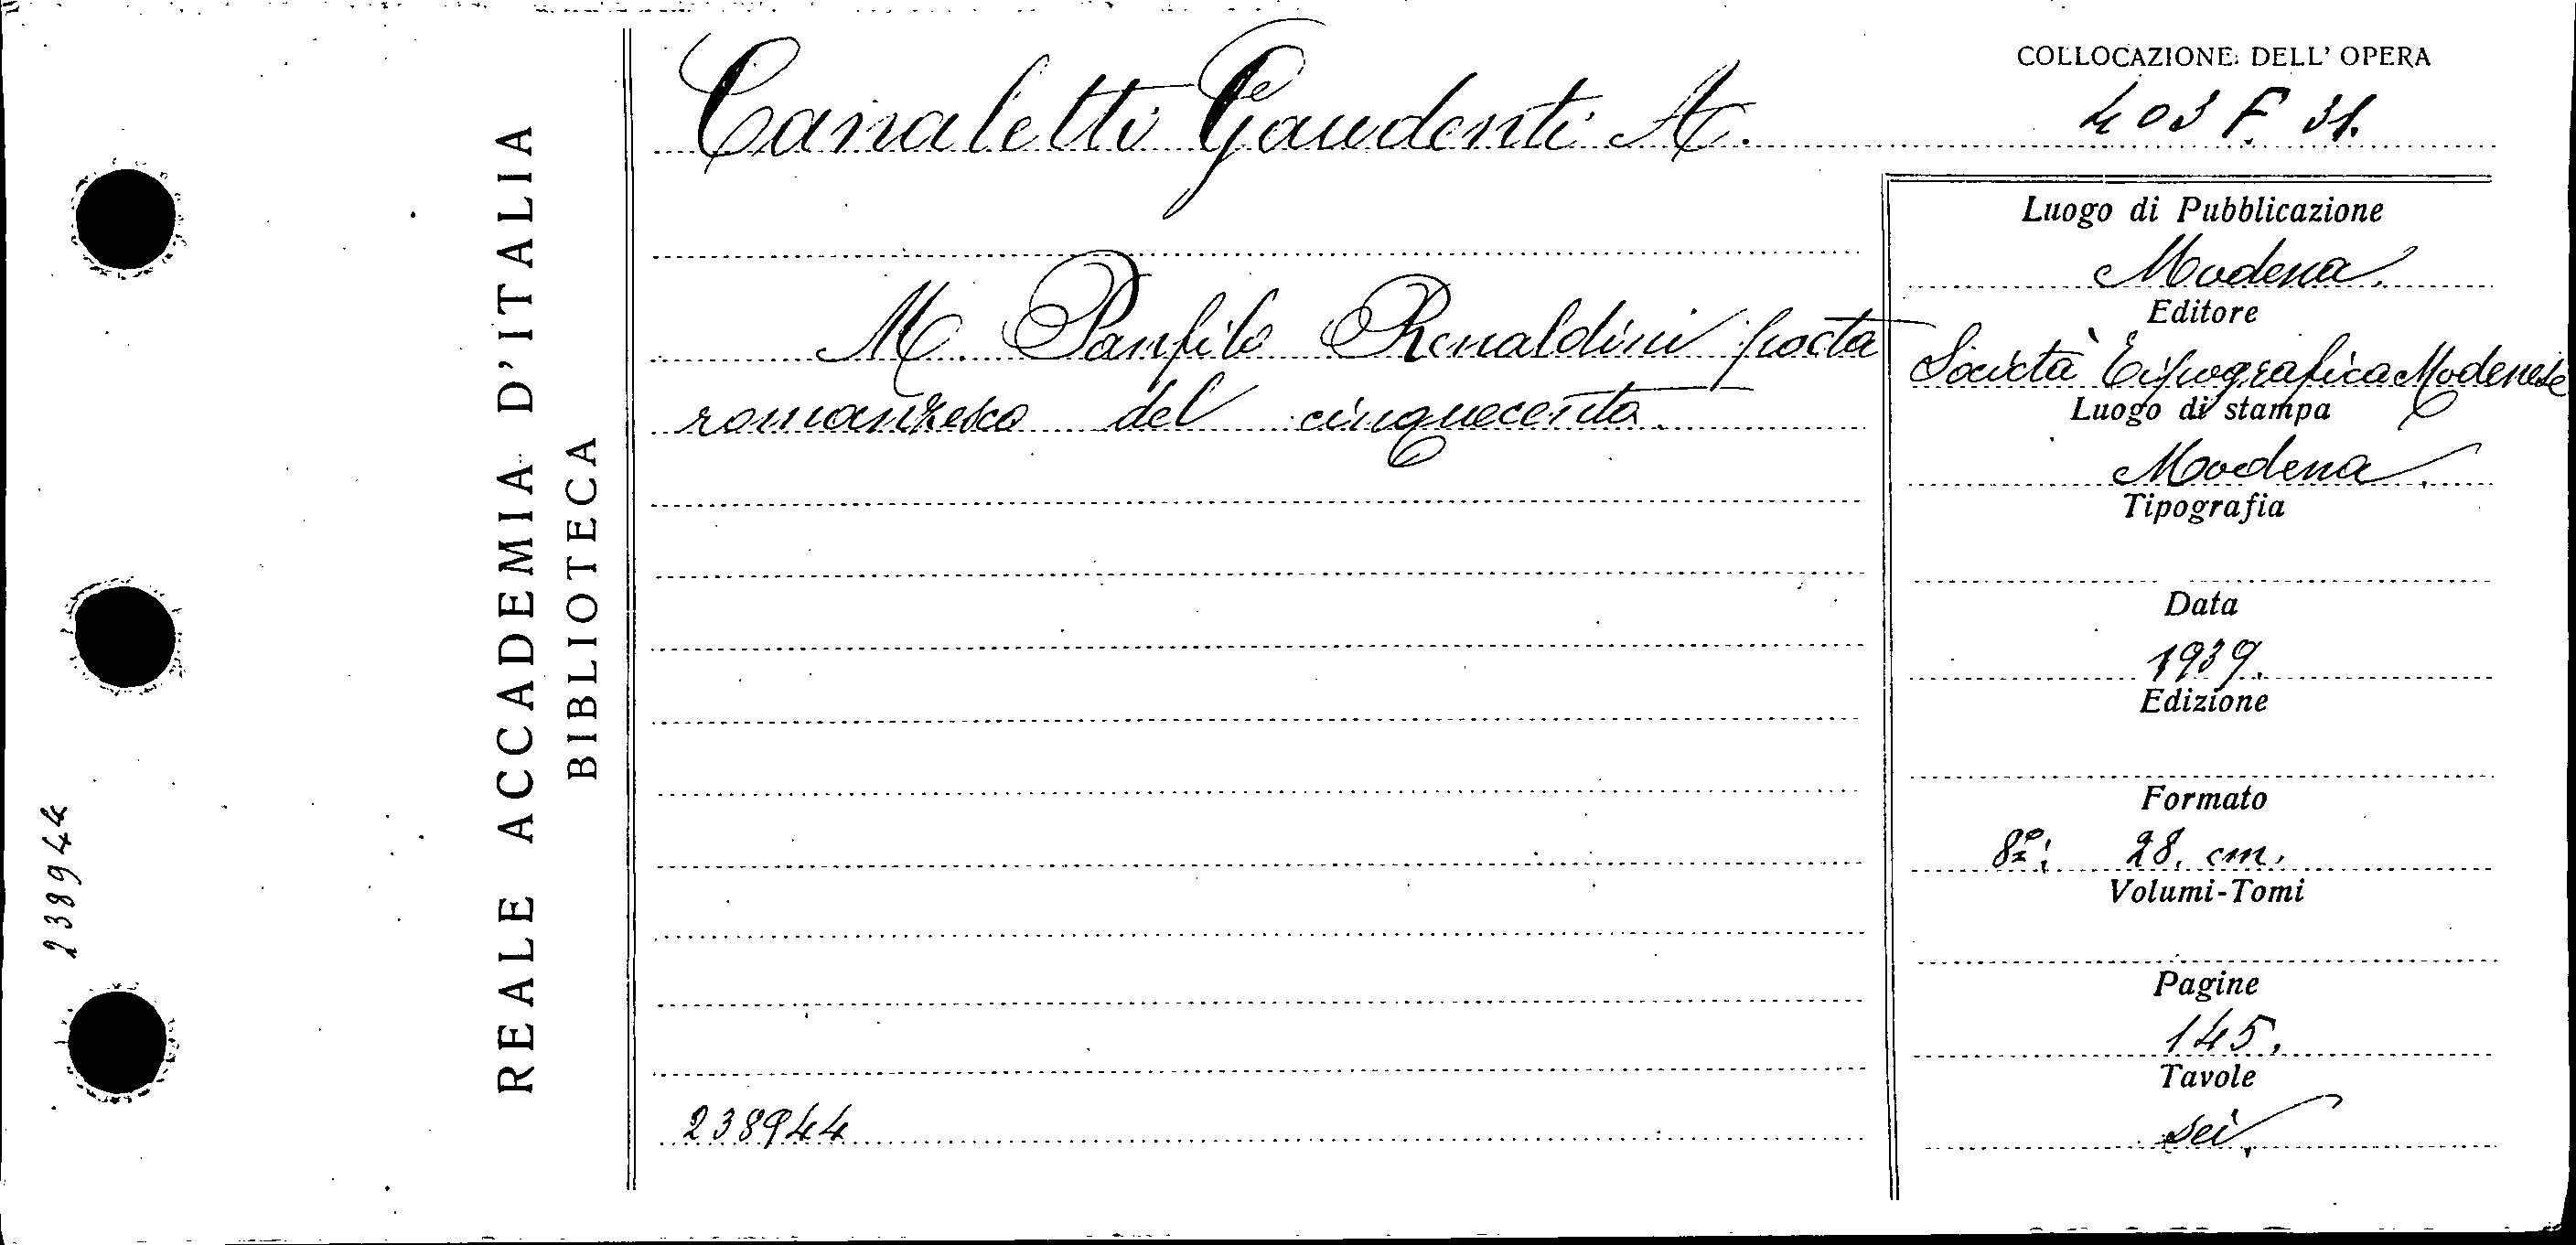 COLLOCAZIONE DELL' OPERA
Canaletti Gaudenti A.
403 F. 31.
REALE ACCADEMIA D'ITALIA
BIBLIOTECA
M. Panfilo Renaldini poeta
romanzesco del cinquecento.
Luogo di Pubblicazione
Modena.
Editore
Società Tipografica Modenese
Luogo di stampa
Modena.
Tipografia
Data
1939.
Edizione
Formato
8º: 28. cm.
Volumi-Tomi
Pagine
145.
Tavole
sei.
238944
238944